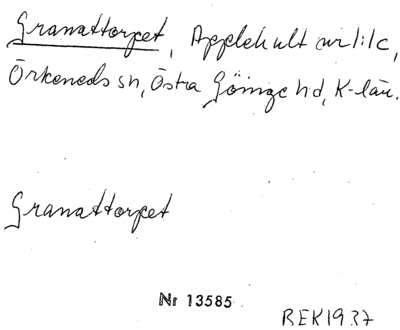 Granattorpet, Applehult nr 1:1c,
Örkeneds sn, Östra Göinge hd, K-län.
Granattorpet
Nr 13585
BEK1937